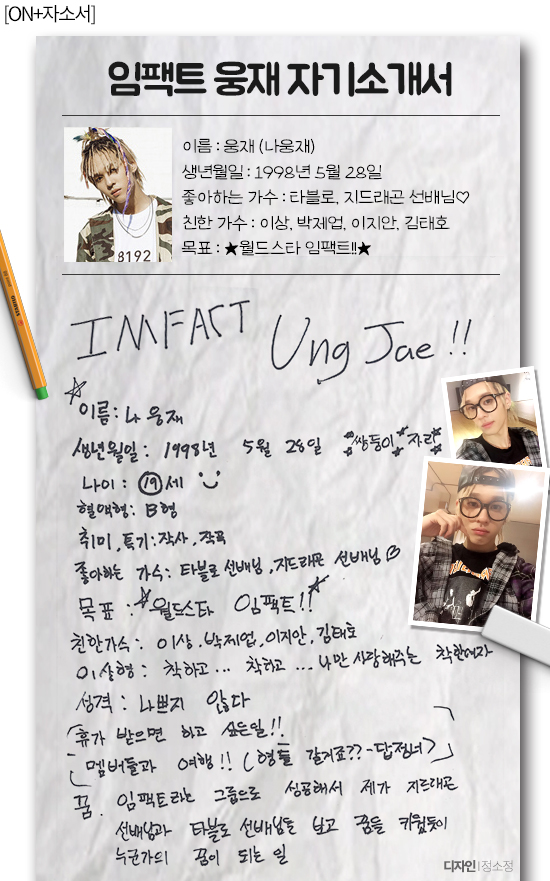 [ON+자소서]
임팩트 웅재 자기소개서
이름 : 웅재 (나웅재)
생년월일 : 1998년 5월 28일
좋아하는 가수 : 타블로, 지드래곤 선배님♡
친한 가수 : 이상, 박제업, 이지안, 김태호
목표 : ★월드스타 임팩트!!★
8192
IMFACT Ung Jae !!
☆이름: 나 웅재
생년월일: 1998년 5월 28일 ☆쌍둥이☆ 자리☆
나이 : ⑲세
혈액형: B형
취미, 특기: 작사, 작곡
좋아하는 가수: 타블로 선배님, 지드래곤 선배님♡
목표 : ☆월드스타 임팩트!!☆
친한가수 : 이상, 박제업, 이지안, 김태호
이상형 : 착하고... 착하고... 나만 사랑해주는 착한여자
성격 : 나쁘지 않다
「휴가 받으면 하고 싶은일!!
멤버들과 여행!! (형들 갈거죠??-답정너)」
꿈. 임팩트라는 그룹으로 성공해서 제가 지드래곤
선배님과 타블로 선배님을 보고 꿈을 키웠듯이
누군가의 꿈이 되는 일
디자인|정소정